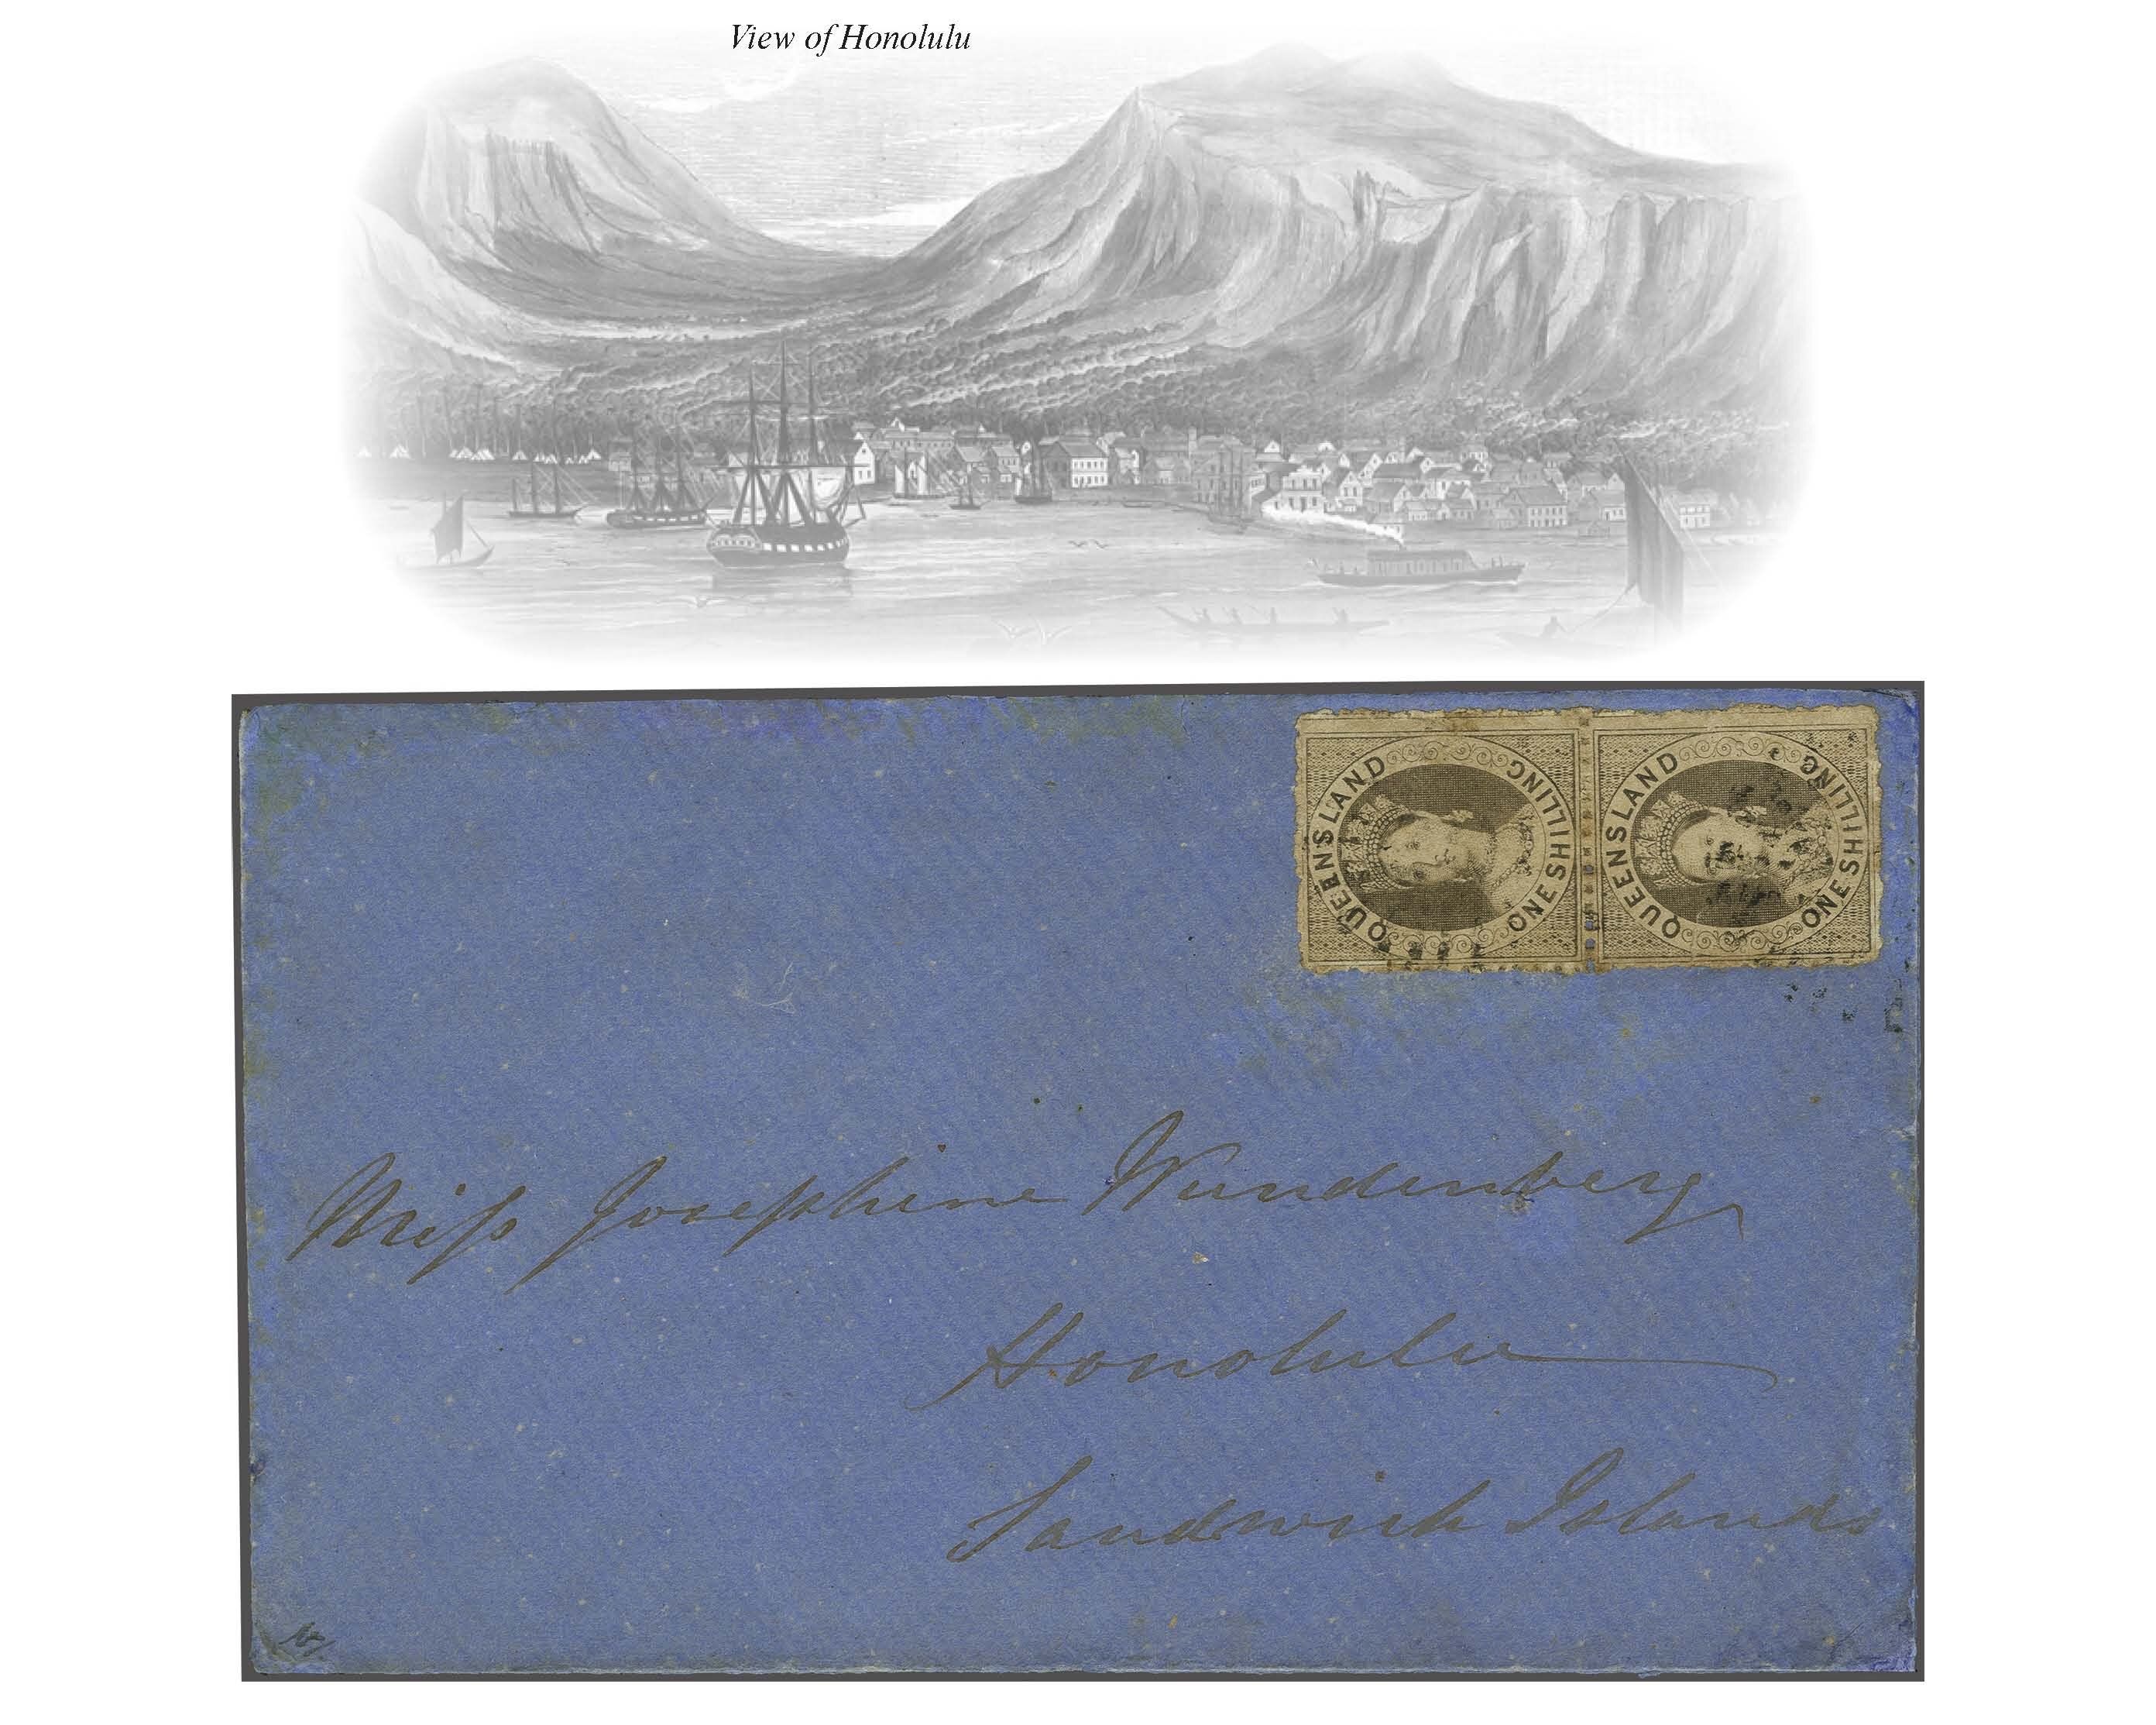 View of Honolulu
QUEENSLAND
ONE SHILLING
QUEENSLAND
ONE SHILLING
Miss Josephine Wundenberg
Honolulu
Sandwich Islands